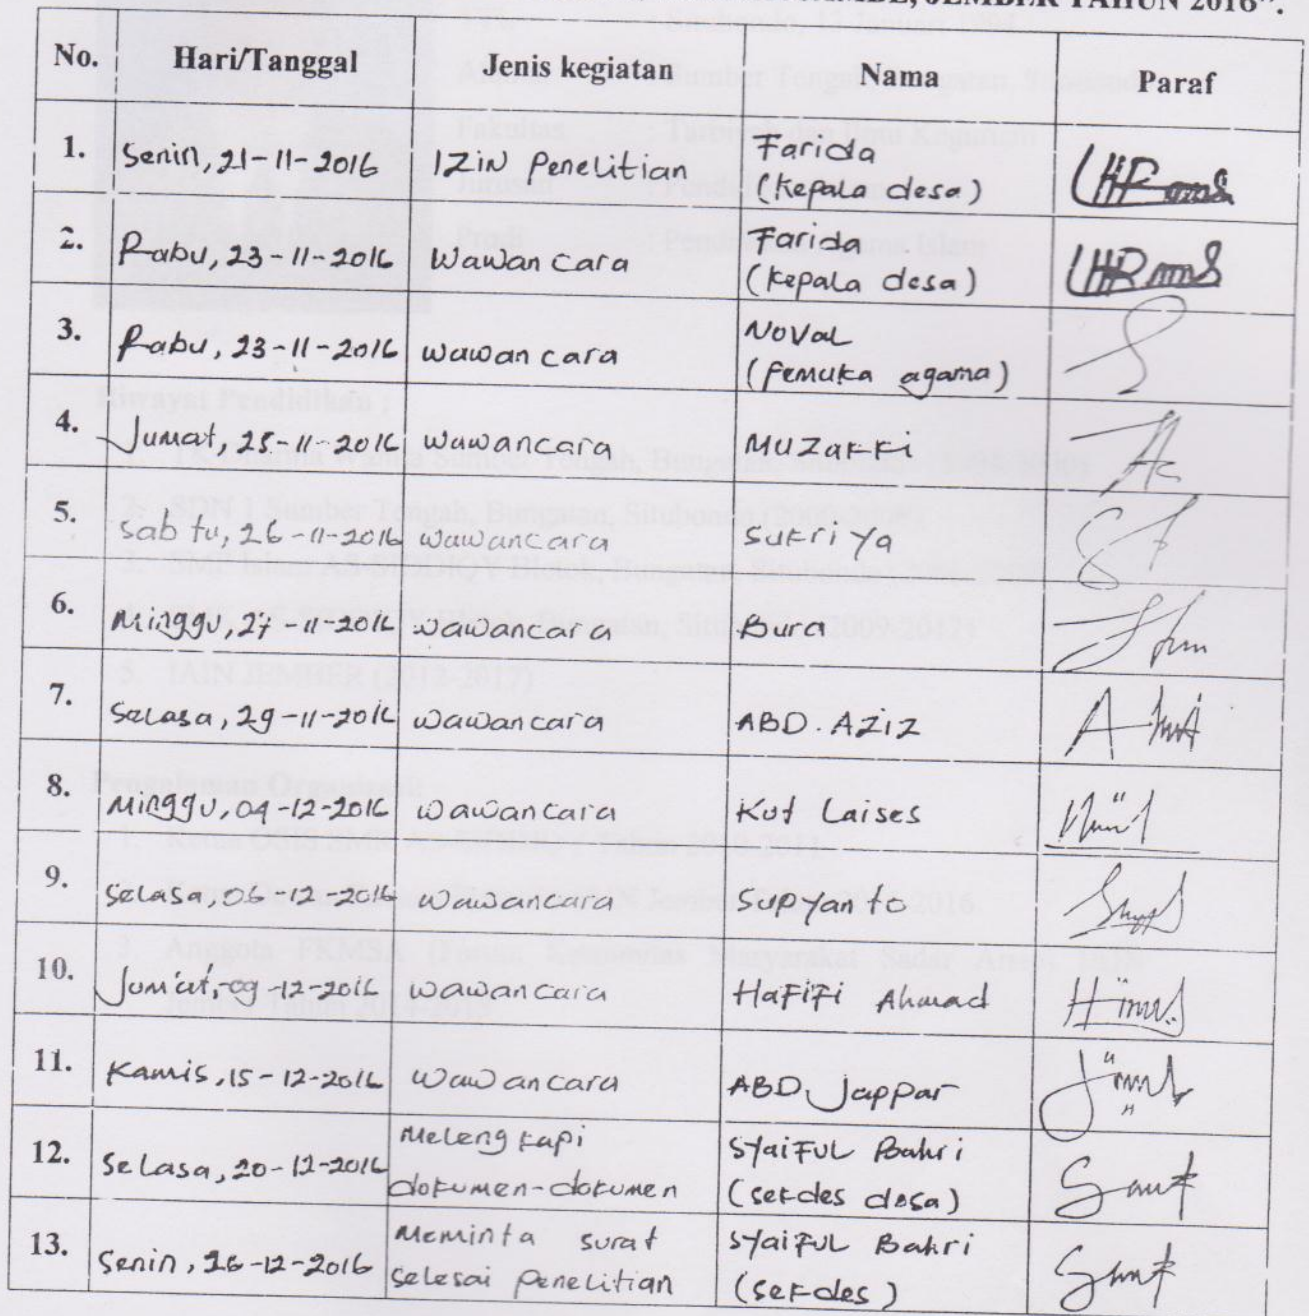 JEMBER TAHUN 2016".
No. Hari/Tanggal Jenis kegiatan Nama Paraf
1. Senin, 21-11-2016 Izin Penelitian Farida
(Kepala desa)
2. Rabu, 23-11-2016 Wawancara Farida
(Kepala desa)
3. Rabu, 23-11-2016 wawancara Noval
(Pemuka agama)
4. Jumat, 25-11-2016 wawancara Muzakki
5. Sabtu, 26-11-2016 wawancara Sukriya
6. Minggu, 27-11-2016 wawancara Bura
7. Selasa, 29-11-2016 wawancara ABD. Aziz
8. Minggu, 04-12-2016 wawancara Kut Laises
9. Selasa, 06-12-2016 wawancara Supyanto
10. Jum'at, 09-12-2016 wawancara Hafifi Ahmad
11. Kamis, 15-12-2016 wawancara ABD. Jappar
12. Selasa, 20-12-2016 Melengkapi
dokumen-dokumen Syaiful Bahri
(sekdes desa)
13. Senin, 26-12-2016 Meminta surat
selesai penelitian Syaiful Bahri
(sekdes)